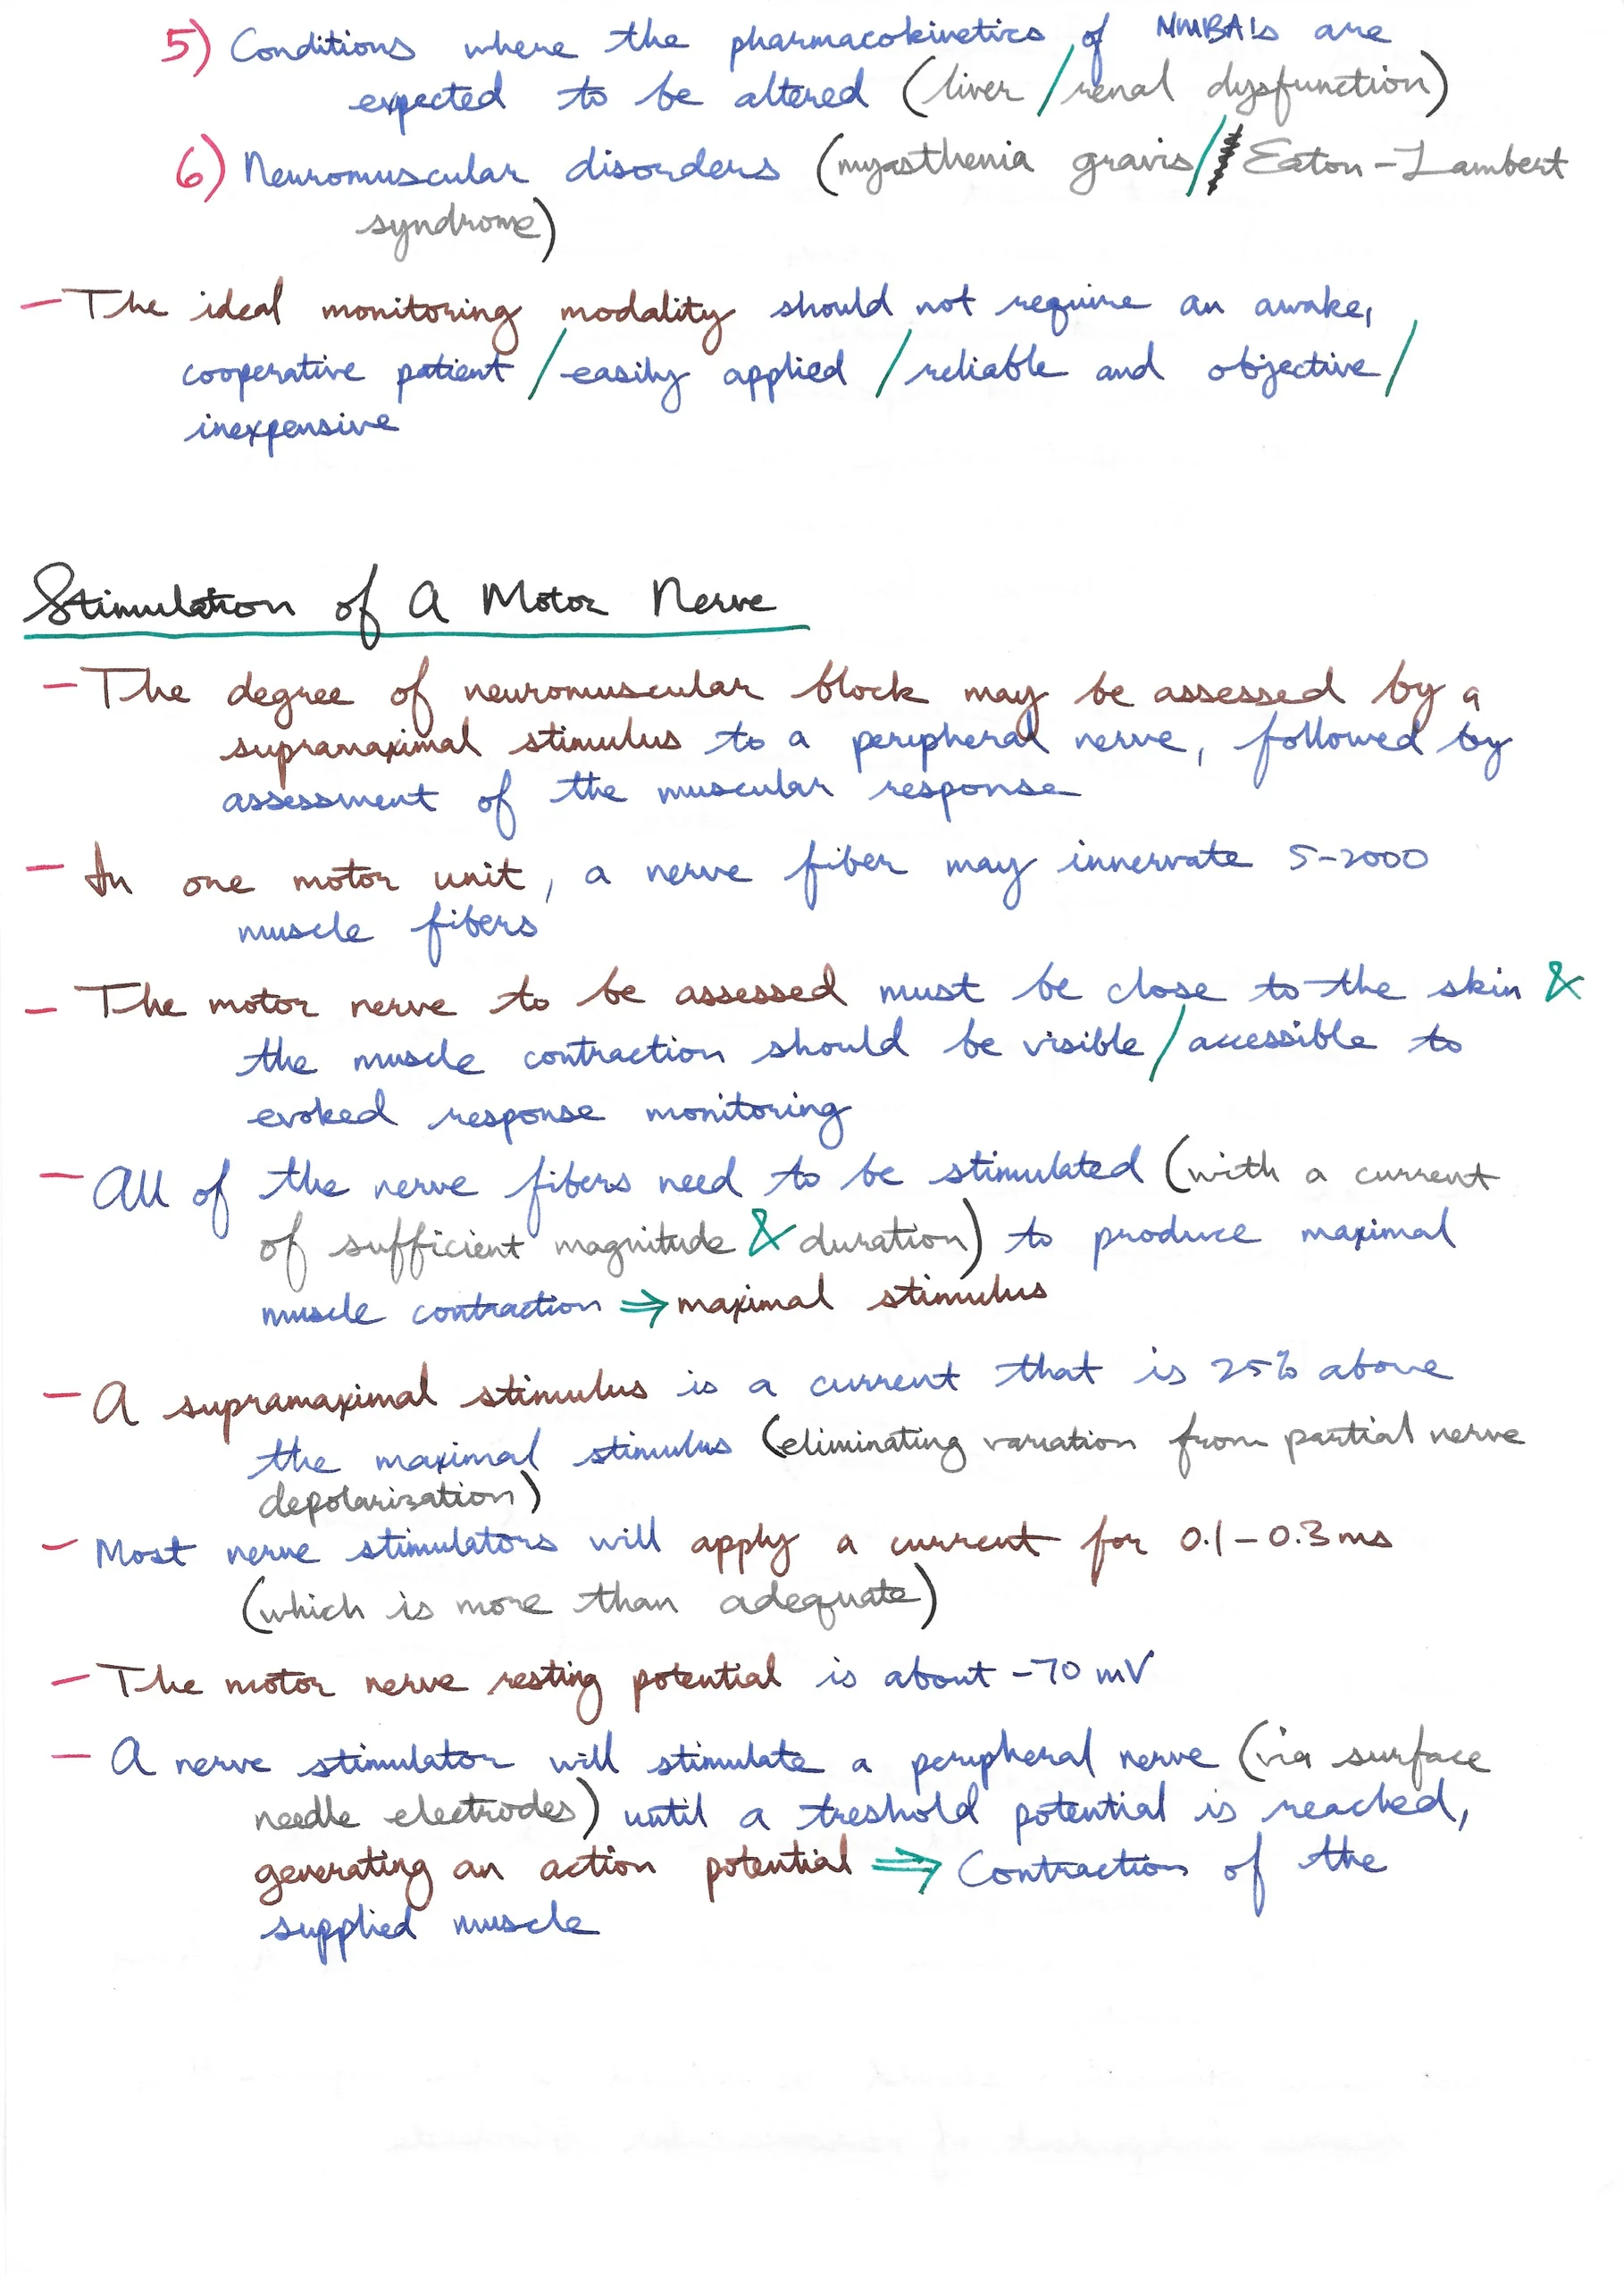 5) Conditions where the pharmacokinetics of NMBA's are
expected to be altered (liver/renal dysfunction)
6) Neuromuscular disorders (myasthenia gravis/ Eaton-Lambert
syndrome)
- The ideal monitoring modality should not require an awake,
cooperative patient / easily applied / reliable and objective /
inexpensive
Stimulation of A Motor Nerve
- The degree of neuromuscular block may be assessed by a
supramaximal stimulus to a peripheral nerve, followed by
assessment of the muscular response
- In one motor unit, a nerve fiber may innervate 5-2000
muscle fibers
- The motor nerve to be assessed must be close to the skin &
the muscle contraction should be visible / accessible to
evoked response monitoring
- All of the nerve fibers need to be stimulated (with a current
of sufficient magnitude & duration) to produce maximal
muscle contraction ⇒ maximal stimulus
- A supramaximal stimulus is a current that is 25% above
the maximal stimulus (eliminating variation from partial nerve
depolarization)
- Most nerve stimulators will apply a current for 0.1-0.3 ms
(which is more than adequate)
- The motor nerve resting potential is about -70 mV
- A nerve stimulator will stimulate a peripheral nerve (via surface
needle electrodes) until a treshold potential is reached,
generating an action potential ⇒ Contraction of the
supplied muscle